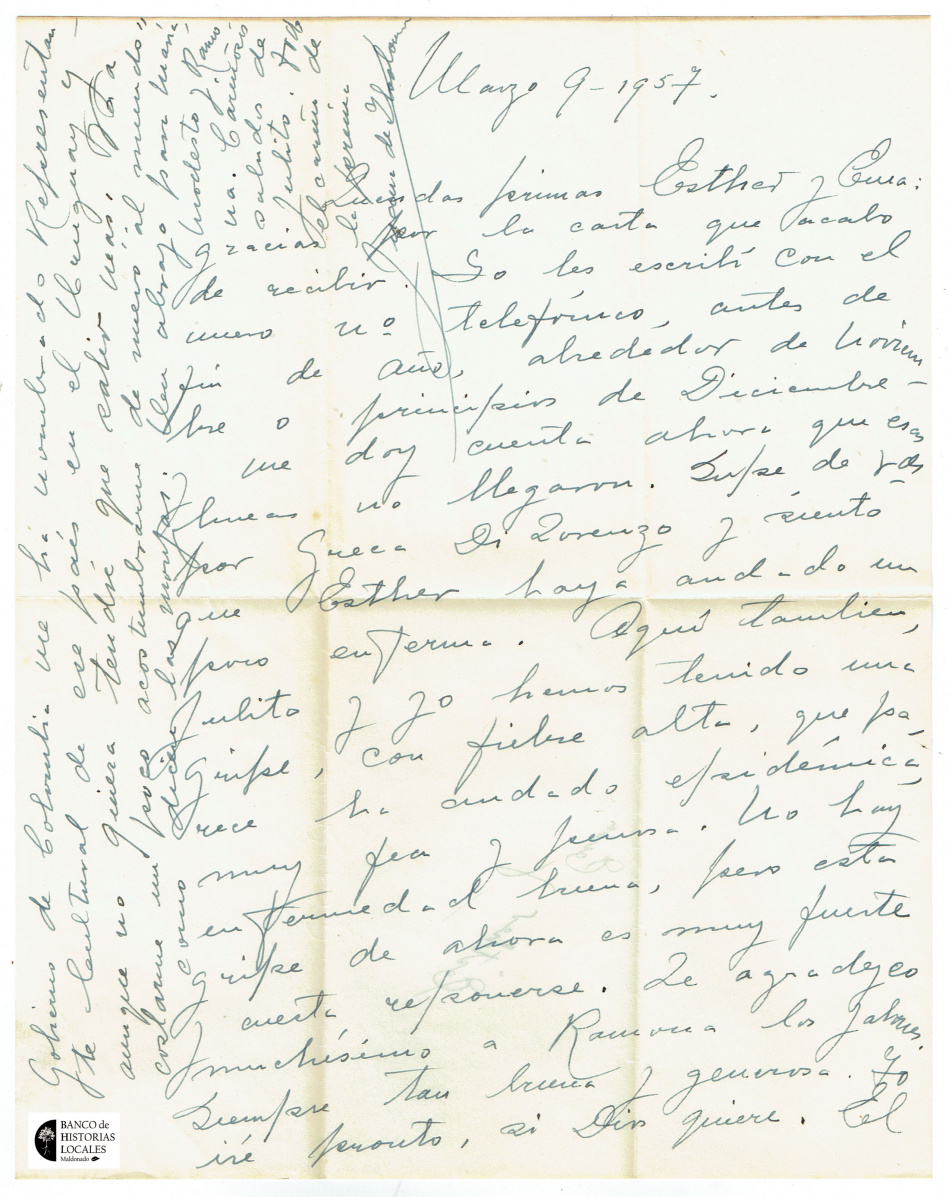 Marzo 9-1957.
Queridas primas Esther y Ema:
gracias por la carta que acabo
de recibir. Yo les escribí con el
nuevo nº telefónico, antes de
fin de año, alrededor de Noviem
bre o principios de Diciembre-
me doy cuenta ahora que esas
líneas no llegaron. Supe de Vdes
por Queca Di Lorenzo y siento
que Esther haya andado un
poco enferma. Aquí tambien,
Julito y yo hemos tenido una
gripe, con fiebre alta, que pa,
rece ha andado epidémica,
muy fea y penosa. No háy
enfermedad buena, pero esta
gripe de ahora es muy fuerte
y cuesta reponerse. Le agradezco
muchísimo a Ramona los jabones
siempre tan buena y generosa. Yo
iré pronto, si Dios quiere. El
Gobierno de Colombia me há nombrado Representan-
te Cultural de ese país en el Uruguay y
aunque no quiera tendré que salir más, Va a
costarme un poco acostumbrarme de nuevo al mundo"
como dicen las monjas.
Un abrazo para María
Modesto y Ramo
na. Cariñosos
saludos de
Julito. Todo
el cariño de
la prima
Juana de Ibarbourou
BANCO de
HISTORIAS
LOCALES
Maldonado